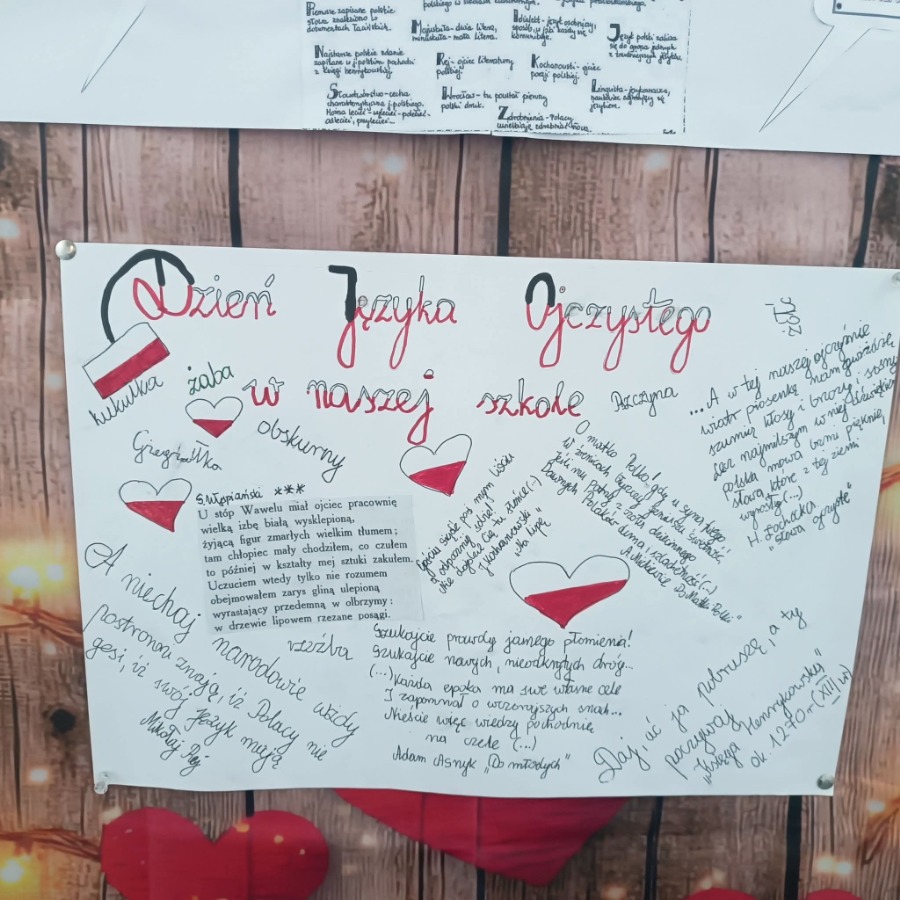 Pierwsze zapisane polskie
słowa znaleziono w
dokumentach łacińskich.
Najstarsze polskie zdanie
zapisane w j. polskim pochodzi
z Księgi henrykowskiej.
Słowotwórstwo - cecha
charakterystyczna j. polskiego.
Majuskuła - duża litera,
minuskuła - mała litera.
Rej - ojciec literatury
polskiej.
Wrocław - tu powstał pierwszy
polski druk.
Dialekt - język osobniczy,
sposób, w jaki każdy się
komunikuje.
Kochanowski - ojciec
poezji polskiej.
Zdrobnienia - Polacy
uwielbiają zdrabniać słowa.
Język polski należy
się do grona
z trudniejszych języków.
Lingwista - językoznawca,
naukowiec zajmujący się
językiem.
Dzień Języka Ojczystego
w naszej szkole
Pszczyna
kukułka
żaba
Grzegżółka
obskurny
rzeźba
S. Wyspiański ***
U stóp Wawelu miał ojciec pracownię
wielką izbę białą wysklepioną,
żyjącą figur zmarłych wielkim tłumem;
tam chłopiec mały chodziłem, co czułem
to później w kształty mej sztuki zakułem.
Uczuciem wtedy tylko nie rozumem
obejmowałem zarys gliną ulepioną
wyrastający przedemną w olbrzymy:
w drzewie lipowem rzezane posągi.
Gościu siądź pod mym liściem
a odpocznij sobie!
Nie dojdzie cię tu słońce (...)
J. Kochanowski
"Na lipę"
O matko Polko, gdy u syna twego
W źrenicach błyszczy genijuszu świetność,
Jeśli mu patrzy z czoła dziecinnego
Dawnych Polaków duma i szlachetność; (...)
A. Mickiewicz "Do Matki Polki"
...A w tej naszej ojczyźnie
wiatr piosenkę nam gwiżdże,
szumią kłosy i brzozy i sosny
lecz najmilszym w niej dźwiękiem
polska mowa brzmi pięknie
słowa, które z tej ziemi
wyrosły (...)
H. Łochocka
"Słowa ojczyste"
A niechaj narodowie wżdy
postronni znają, iż Polacy nie
gęsi, iż swój język mają
Mikołaj Rej
Szukajcie prawdy jasnego płomienia!
Szukajcie nowych, nieodkrytych dróg...
(...) Każda epoka ma swe własne cele
I zapomina o wczorajszych snach...
Nieście więc wiedzy pochodnię
na czele (...)
Adam Asnyk "Do młodych"
Daj, ać ja pobruszę, a ty
poczywaj
"Księga Henrykowska"
ok. 1270 r. (XIII w)